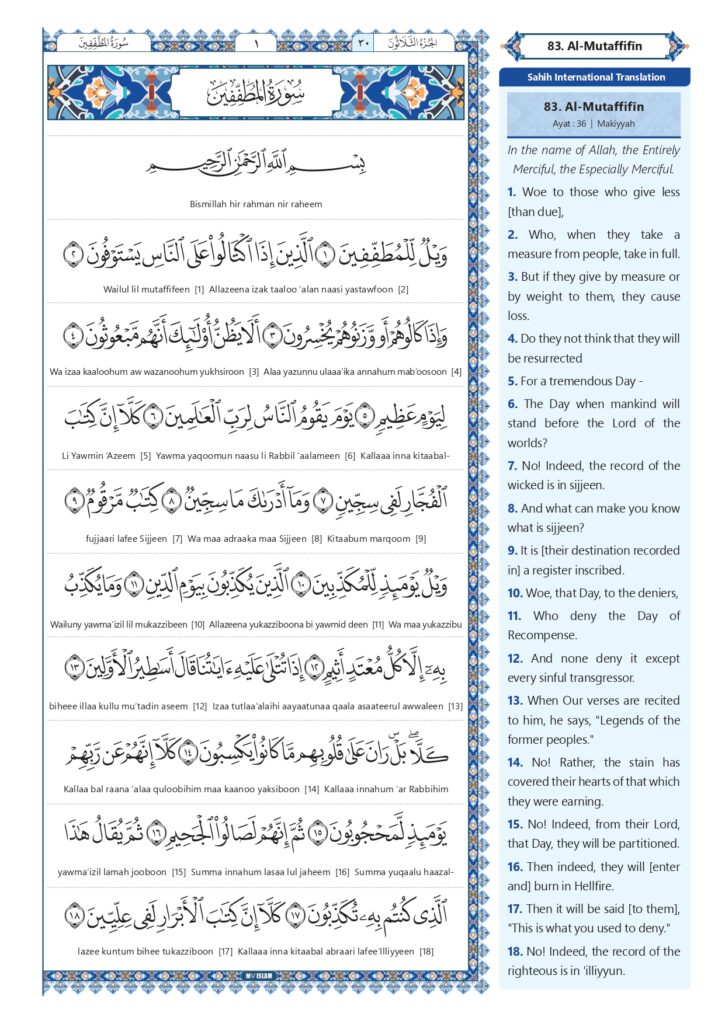 سُورَةُ المُطَفِّفِين
١
٣٠
الجُزءُ الثَّلَاثُونَ
سُورَةُ المُطَفِّفِينَ
بِسْمِ اللَّهِ الرَّحْمَٰنِ الرَّحِيمِ
Bismillah hir rahman nir raheem
وَيْلٌ لِّلْمُطَفِّفِينَ ۝١ ٱلَّذِينَ إِذَا ٱكْتَالُوا۟ عَلَى ٱلنَّاسِ يَسْتَوْفُونَ ۝٢
Wailul lil mutaffifeen [1] Allazeena izak taaloo 'alan naasi yastawfoon [2]
وَإِذَا كَالُوهُمْ أَو وَّزَنُوهُمْ يُخْسِرُونَ ۝٣ أَلَا يَظُنُّ أُو۟لَٰٓئِكَ أَنَّهُم مَّبْعُوثُونَ ۝٤
Wa izaa kaaloohum aw wazanoohum yukhsiroon [3] Alaa yazunnu ulaaa'ika annahum mab'oosoon [4]
لِيَوْمٍ عَظِيمٍ ۝٥ يَوْمَ يَقُومُ ٱلنَّاسُ لِرَبِّ ٱلْعَٰلَمِينَ ۝٦ كَلَّآ إِنَّ كِتَٰبَ
Li Yawmin 'Azeem [5] Yawma yaqoomun naasu li Rabbil 'aalameen [6] Kallaaa inna kitaabal-
ٱلْفُجَّارِ لَفِى سِجِّينٍ ۝٧ وَمَآ أَدْرَىٰكَ مَا سِجِّينٌ ۝٨ كِتَٰبٌ مَّرْقُومٌ ۝٩
fujjaari lafee Sijjeen [7] Wa maa adraaka maa Sijjeen [8] Kitaabum marqoom [9]
وَيْلٌ يَوْمَئِذٍ لِّلْمُكَذِّبِينَ ۝١٠ ٱلَّذِينَ يُكَذِّبُونَ بِيَوْمِ ٱلدِّينِ ۝١١ وَمَا يُكَذِّبُ
Wailuny yawma'izil lil mukazzibeen [10] Allazeena yukazziboona bi yawmid deen [11] Wa maa yukazzibu
بِهِۦٓ إِلَّا كُلُّ مُعْتَدٍ أَثِيمٍ ۝١٢ إِذَا تُتْلَىٰ عَلَيْهِ ءَايَٰتُنَا قَالَ أَسَٰطِيرُ ٱلْأَوَّلِينَ ۝١٣
biheee illaa kullu mu'tadin aseem [12] Izaa tutlaa'alaihi aayaatunaa qaala asaateerul awwaleen [13]
كَلَّا ۖ بَلْ ۜ رَانَ عَلَىٰ قُلُوبِهِم مَّا كَانُوا۟ يَكْسِبُونَ ۝١٤ كَلَّآ إِنَّهُمْ عَن رَّبِّهِمْ
Kallaa bal raana 'alaa quloobihim maa kaanoo yaksiboon [14] Kallaaa innahum 'ar Rabbihim
يَوْمَئِذٍ لَّمَحْجُوبُونَ ۝١٥ ثُمَّ إِنَّهُمْ لَصَالُوا۟ ٱلْجَحِيمِ ۝١٦ ثُمَّ يُقَالُ هَٰذَا
yawma'izil lamah jooboon [15] Summa innahum lasaa lul jaheem [16] Summa yuqaalu haazal-
ٱلَّذِى كُنتُم بِهِۦ تُكَذِّبُونَ ۝١٧ كَلَّآ إِنَّ كِتَٰبَ ٱلْأَبْرَارِ لَفِى عِلِّيِّينَ ۝١٨
lazee kuntum bihee tukazziboon [17] Kallaaa inna kitaabal abraari lafee'Illiyyeen [18]
MY ISLAM
83. Al-Mutaffifīn
Sahih International Translation
83. Al-Mutaffifīn
Ayat : 36 | Makiyyah
In the name of Allah, the Entirely
Merciful, the Especially Merciful.
1. Woe to those who give less
[than due],
2. Who, when they take a
measure from people, take in full.
3. But if they give by measure or
by weight to them, they cause
loss.
4. Do they not think that they will
be resurrected
5. For a tremendous Day -
6. The Day when mankind will
stand before the Lord of the
worlds?
7. No! Indeed, the record of the
wicked is in sijjeen.
8. And what can make you know
what is sijjeen?
9. It is [their destination recorded
in] a register inscribed.
10. Woe, that Day, to the deniers,
11. Who deny the Day of
Recompense.
12. And none deny it except
every sinful transgressor.
13. When Our verses are recited
to him, he says, "Legends of the
former peoples."
14. No! Rather, the stain has
covered their hearts of that which
they were earning.
15. No! Indeed, from their Lord,
that Day, they will be partitioned.
16. Then indeed, they will [enter
and] burn in Hellfire.
17. Then it will be said [to them],
"This is what you used to deny."
18. No! Indeed, the record of the
righteous is in 'illiyyun.